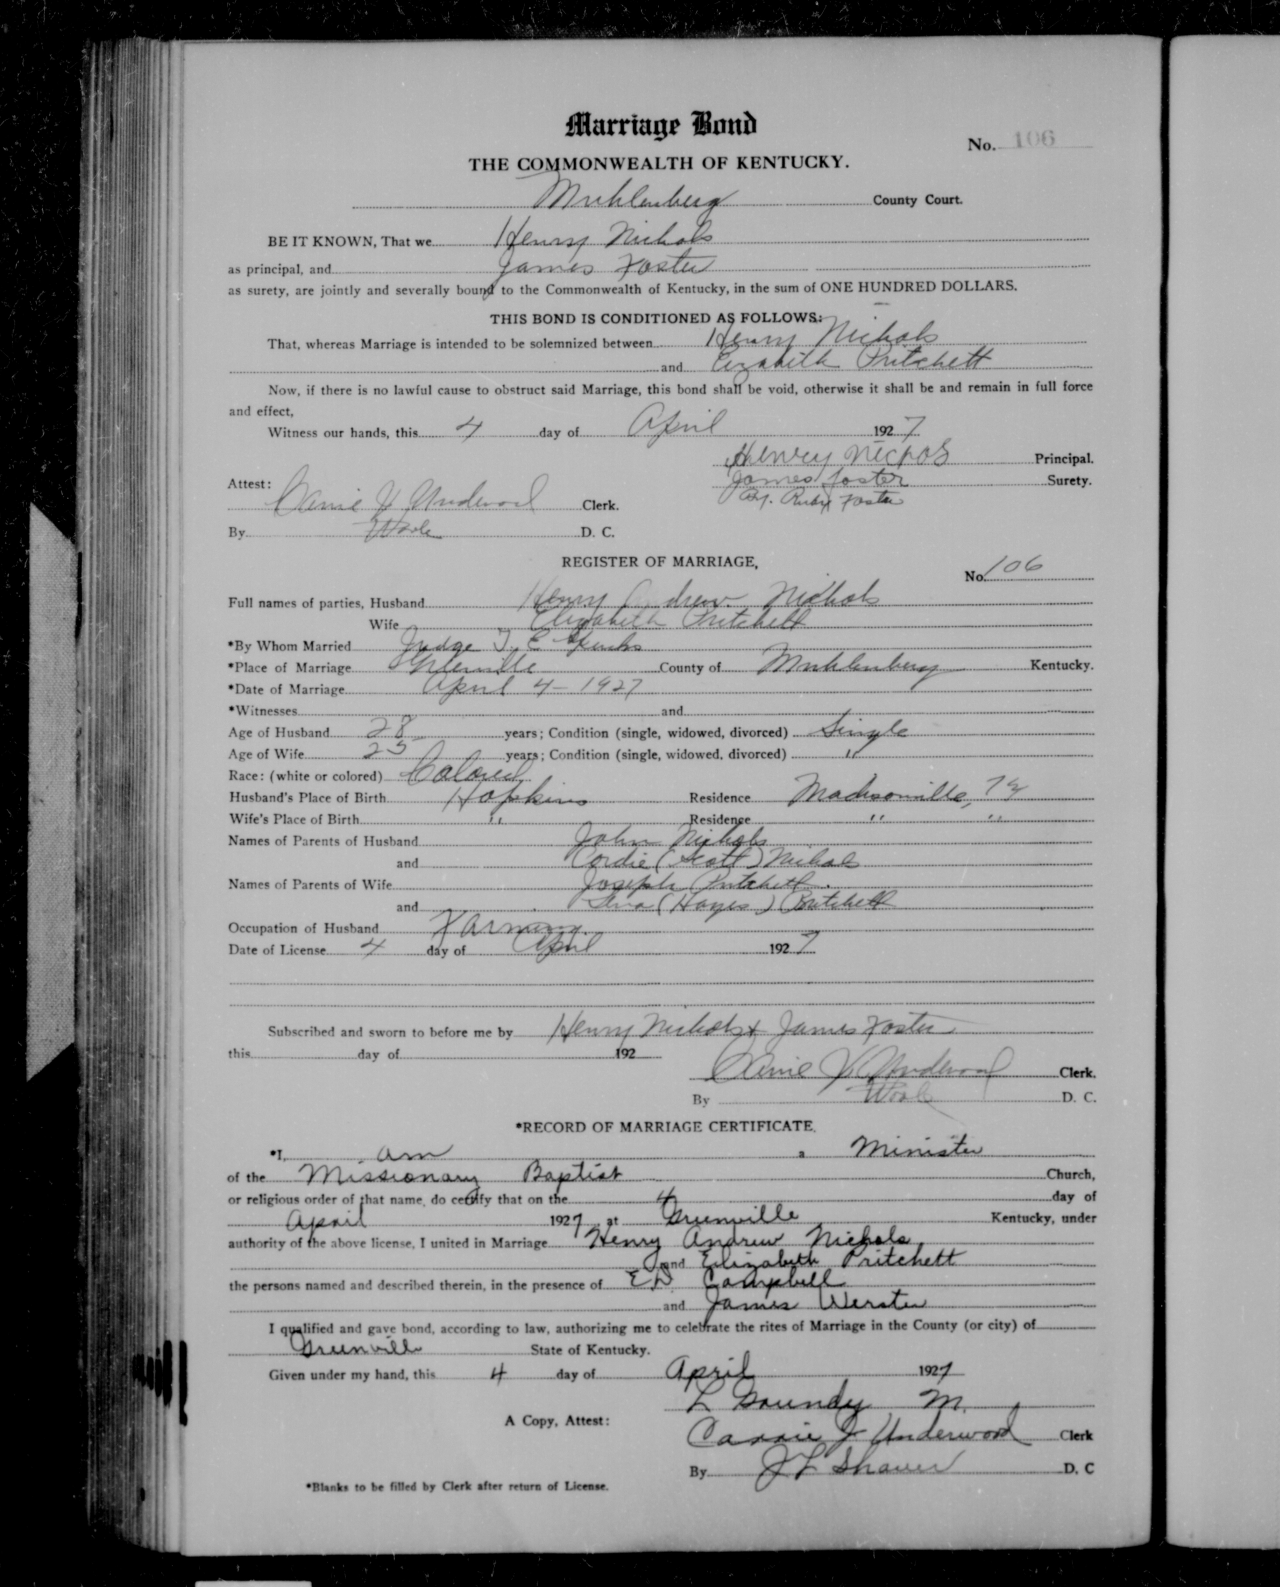 Marriage Bond
No. 106
THE COMMONWEALTH OF KENTUCKY.
Muhlenberg County Court.
BE IT KNOWN, That we Henry Nichols
as principal, and James Foster
as surety, are jointly and severally bound to the Commonwealth of Kentucky, in the sum of ONE HUNDRED DOLLARS.
THIS BOND IS CONDITIONED AS FOLLOWS:
That, whereas Marriage is intended to be solemnized between Henry Nichols
and Elizabeth Pritchett
Now, if there is no lawful cause to obstruct said Marriage, this bond shall be void, otherwise it shall be and remain in full force
and effect,
Witness our hands, this 4 day of April 1927
Henry Nichols Principal.
Attest: James Foster Surety.
By. Ruby Foster
Carrie J Underwood Clerk.
By D. C.
REGISTER OF MARRIAGE,
No. 106
Full names of parties, Husband Henry Andrew Nichols
Wife Elizabeth Pritchett
*By Whom Married Judge T. E
*Place of Marriage Greenville County of Muhlenberg Kentucky.
*Date of Marriage April 4-1927
*Witnesses and
Age of Husband 28 years; Condition (single, widowed, divorced) Single
Age of Wife 25 years; Condition (single, widowed, divorced) "
Race: (white or colored) Colored
Husband's Place of Birth Hopkins Residence Madisonville, Ky
Wife's Place of Birth " Residence " "
Names of Parents of Husband John Nichols
and Cordie (Scott) Nichols
Names of Parents of Wife Joseph Pritchett.
and (Hayes) Pritchett
Occupation of Husband Farming
Date of License 4 day of April 1927
Subscribed and sworn to before me by Henry Nichols & James Foster
this day of 192
Carrie J Underwood Clerk.
By D. C.
*RECORD OF MARRIAGE CERTIFICATE.
*I, am a Minister
of the Missionary Baptist Church,
or religious order of that name, do certify that on the 4 day of
April 1927 at Greenville Kentucky, under
authority of the above license, I united in Marriage Henry Andrew Nichols
and Elizabeth Pritchett
the persons named and described therein, in the presence of E D Campbell
and James Werster
I qualified and gave bond, according to law, authorizing me to celebrate the rites of Marriage in the County (or city) of
Greenville State of Kentucky.
Given under my hand, this 4 day of April 1927
L Goundy M.
A Copy, Attest: Carrie J Underwood Clerk
By J L Shaver D. C
*Blanks to be filled by Clerk after return of License.